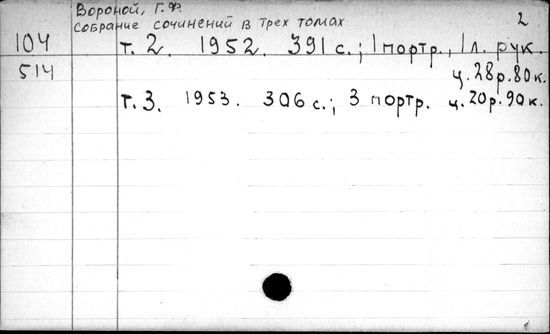 Вороной, Г.Ф.
Собрание сочинений в трех томах 2
104 т. 2. 1952. 391 с.; 1 портр., 1 л. рук.
514 ц. 28 р. 80 к.
т. 3. 1953. 306 с.; 3 портр. ц. 20 р. 90 к.